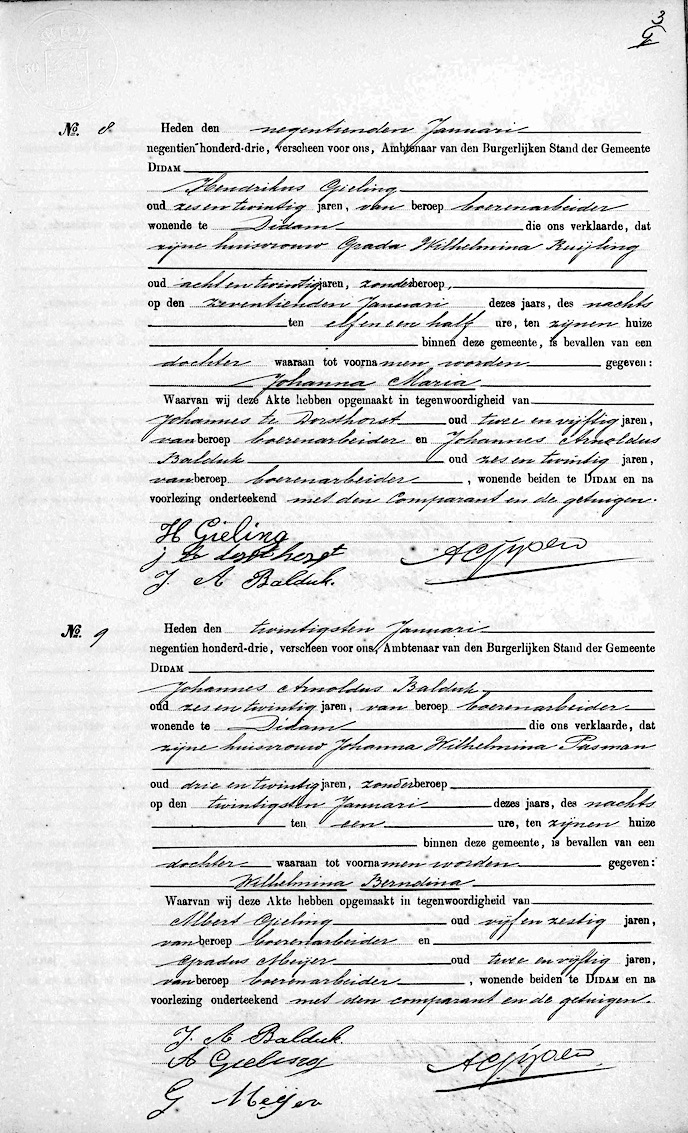 3
No. 8 Heden den negentienden Januari
negentien honderd-drie, verscheen voor ons, Ambtenaar van den Burgerlijken Stand der Gemeente
DIDAM
Hendrikus Gieling
oud zes en twintig jaren, van beroep boerenarbeider
wonende te Didam die ons verklaarde, dat
zijne huisvrouw Grada Wilhelmina Ruijling
oud acht en twintig jaren, zonder beroep,
op den zeventienden Januari dezes jaars, des nachts
ten elf en een half ure, ten zijnen huize
binnen deze gemeente, is bevallen van een
dochter waaraan tot voornamen worden gegeven:
Johanna Maria
Waarvan wij deze Akte hebben opgemaakt in tegenwoordigheid van
Johannes te Dorsthorst oud twee en vijftig jaren,
van beroep boerenarbeider en Johannes Arnoldus
Balduk oud zes en twintig jaren,
van beroep boerenarbeider, wonende beiden te DIDAM en na
voorlezing onderteekend met den comparant en de getuigen.
H Gieling
j te dorsthorst
J. A Balduk.
No. 9 Heden den twintigsten Januari
negentien honderd-drie, verscheen voor ons, Ambtenaar van den Burgerlijken Stand der Gemeente
DIDAM
Johannes Arnoldus Balduk,
oud zes en twintig jaren, van beroep boerenarbeider
wonende te Didam die ons verklaarde, dat
zijne huisvrouw Johanna Wilhelmina Pasman
oud drie en twintig jaren, zonder beroep
op den twintigsten Januari dezes jaars, des nachts
ten een ure, ten zijnen huize
binnen deze gemeente, is bevallen van een
dochter waaraan tot voornamen worden gegeven:
Wilhelmina Berndina
Waarvan wij deze Akte hebben opgemaakt in tegenwoordigheid van
Albert Gieling oud vijf en zestig jaren,
van beroep boerenarbeider en
Gradus Meijer oud twee en vijftig jaren,
van beroep boerenarbeider, wonende beiden te DIDAM en na
voorlezing onderteekend met den comparant en de getuigen.
J. A Balduk.
A Gieling
G Meijer